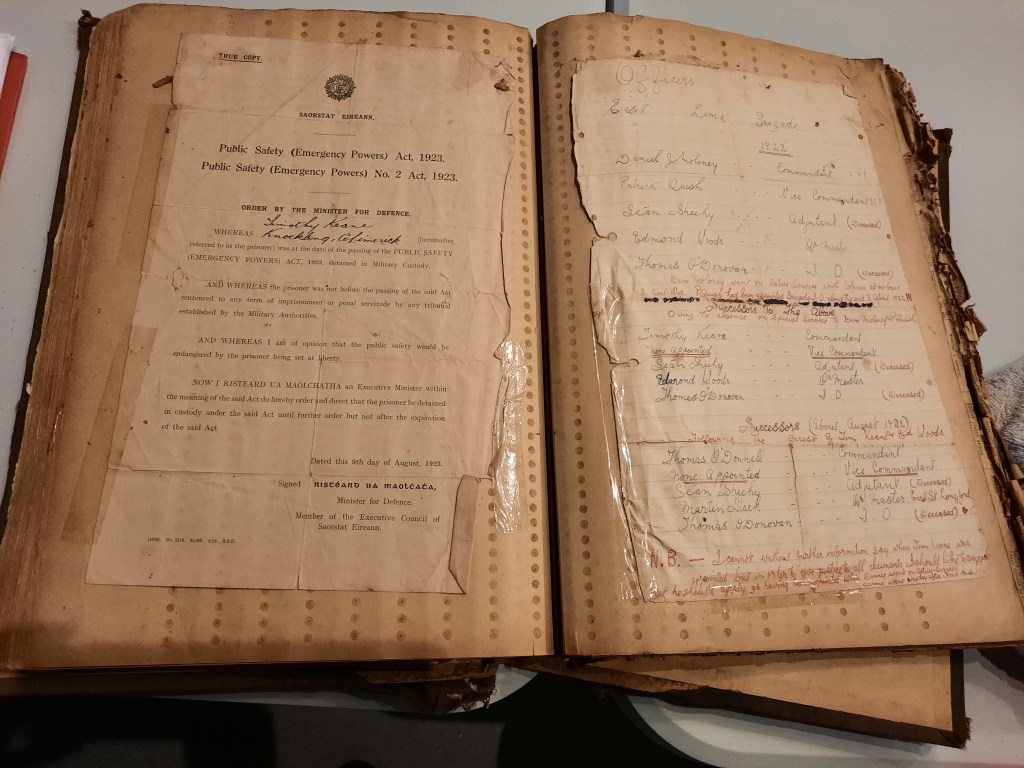 TRUE COPY.
SAORSTAT EIREANN.
Public Safety (Emergency Powers) Act, 1923.
Public Safety (Emergency Powers) No. 2 Act, 1923.
ORDER BY THE MINISTER FOR DEFENCE.
Timothy Keane
WHEREAS Knocklong, Co Limerick (hereinafter
referred to as the prisoner) was at the date of the passing of the PUBLIC SAFETY
(EMERGENCY POWERS) ACT, 1923, detained in Military Custody.
AND WHEREAS the prisoner was not before the passing of the said Act
sentenced to any term of imprisonment or penal servitude by any tribunal
established by the Military Authorities.
AND WHEREAS I am of opinion that the public safety would be
endangered by the prisoner being set at liberty.
NOW I RISTEARD UA MAOLCHATHA an Executive Minister within
the meaning of the said Act do hereby order and direct that the prisoner be detained
in custody under the said Act until further order but not after the expiration
of the said Act.
Dated this 9th day of August, 1923.
Signed RISTÉARD UA MAOLĊAṪA,
Minister for Defence.
Member of the Executive Council of
Saorstat Eireann.
Officers
East Limk Brigade
1922
Daniel J Moloney Commandant
Patrick Quish Vice Commandant
Seán Sheehy Adjutant (Deceased)
Edmond Woods
Thomas O'Donovan I O (Deceased)
went on Active Service with Column
Successors To The Above
Owing To absence on Special Service of
Timothy Keane Commandant
none Appointed Vice Commandant
Seán Sheehy Adjutant (Deceased)
Edmond Woods Qr Master
Thomas O'Donovan I O. (Deceased)
Successors (About August 1922)
Following The Arrest of Tim Keane & Ed Woods
Thomas O'Donnell Commandant
none Appointed Vice Commandant
Seán Sheehy Adjutant (Deceased)
Martin Qr Master
Thomas O'Donovan I O. (Deceased)
N.B. — I cannot without further information say when Tim Keane was
but in order to give justice to all claimants I should like to suggest
he should apply as having